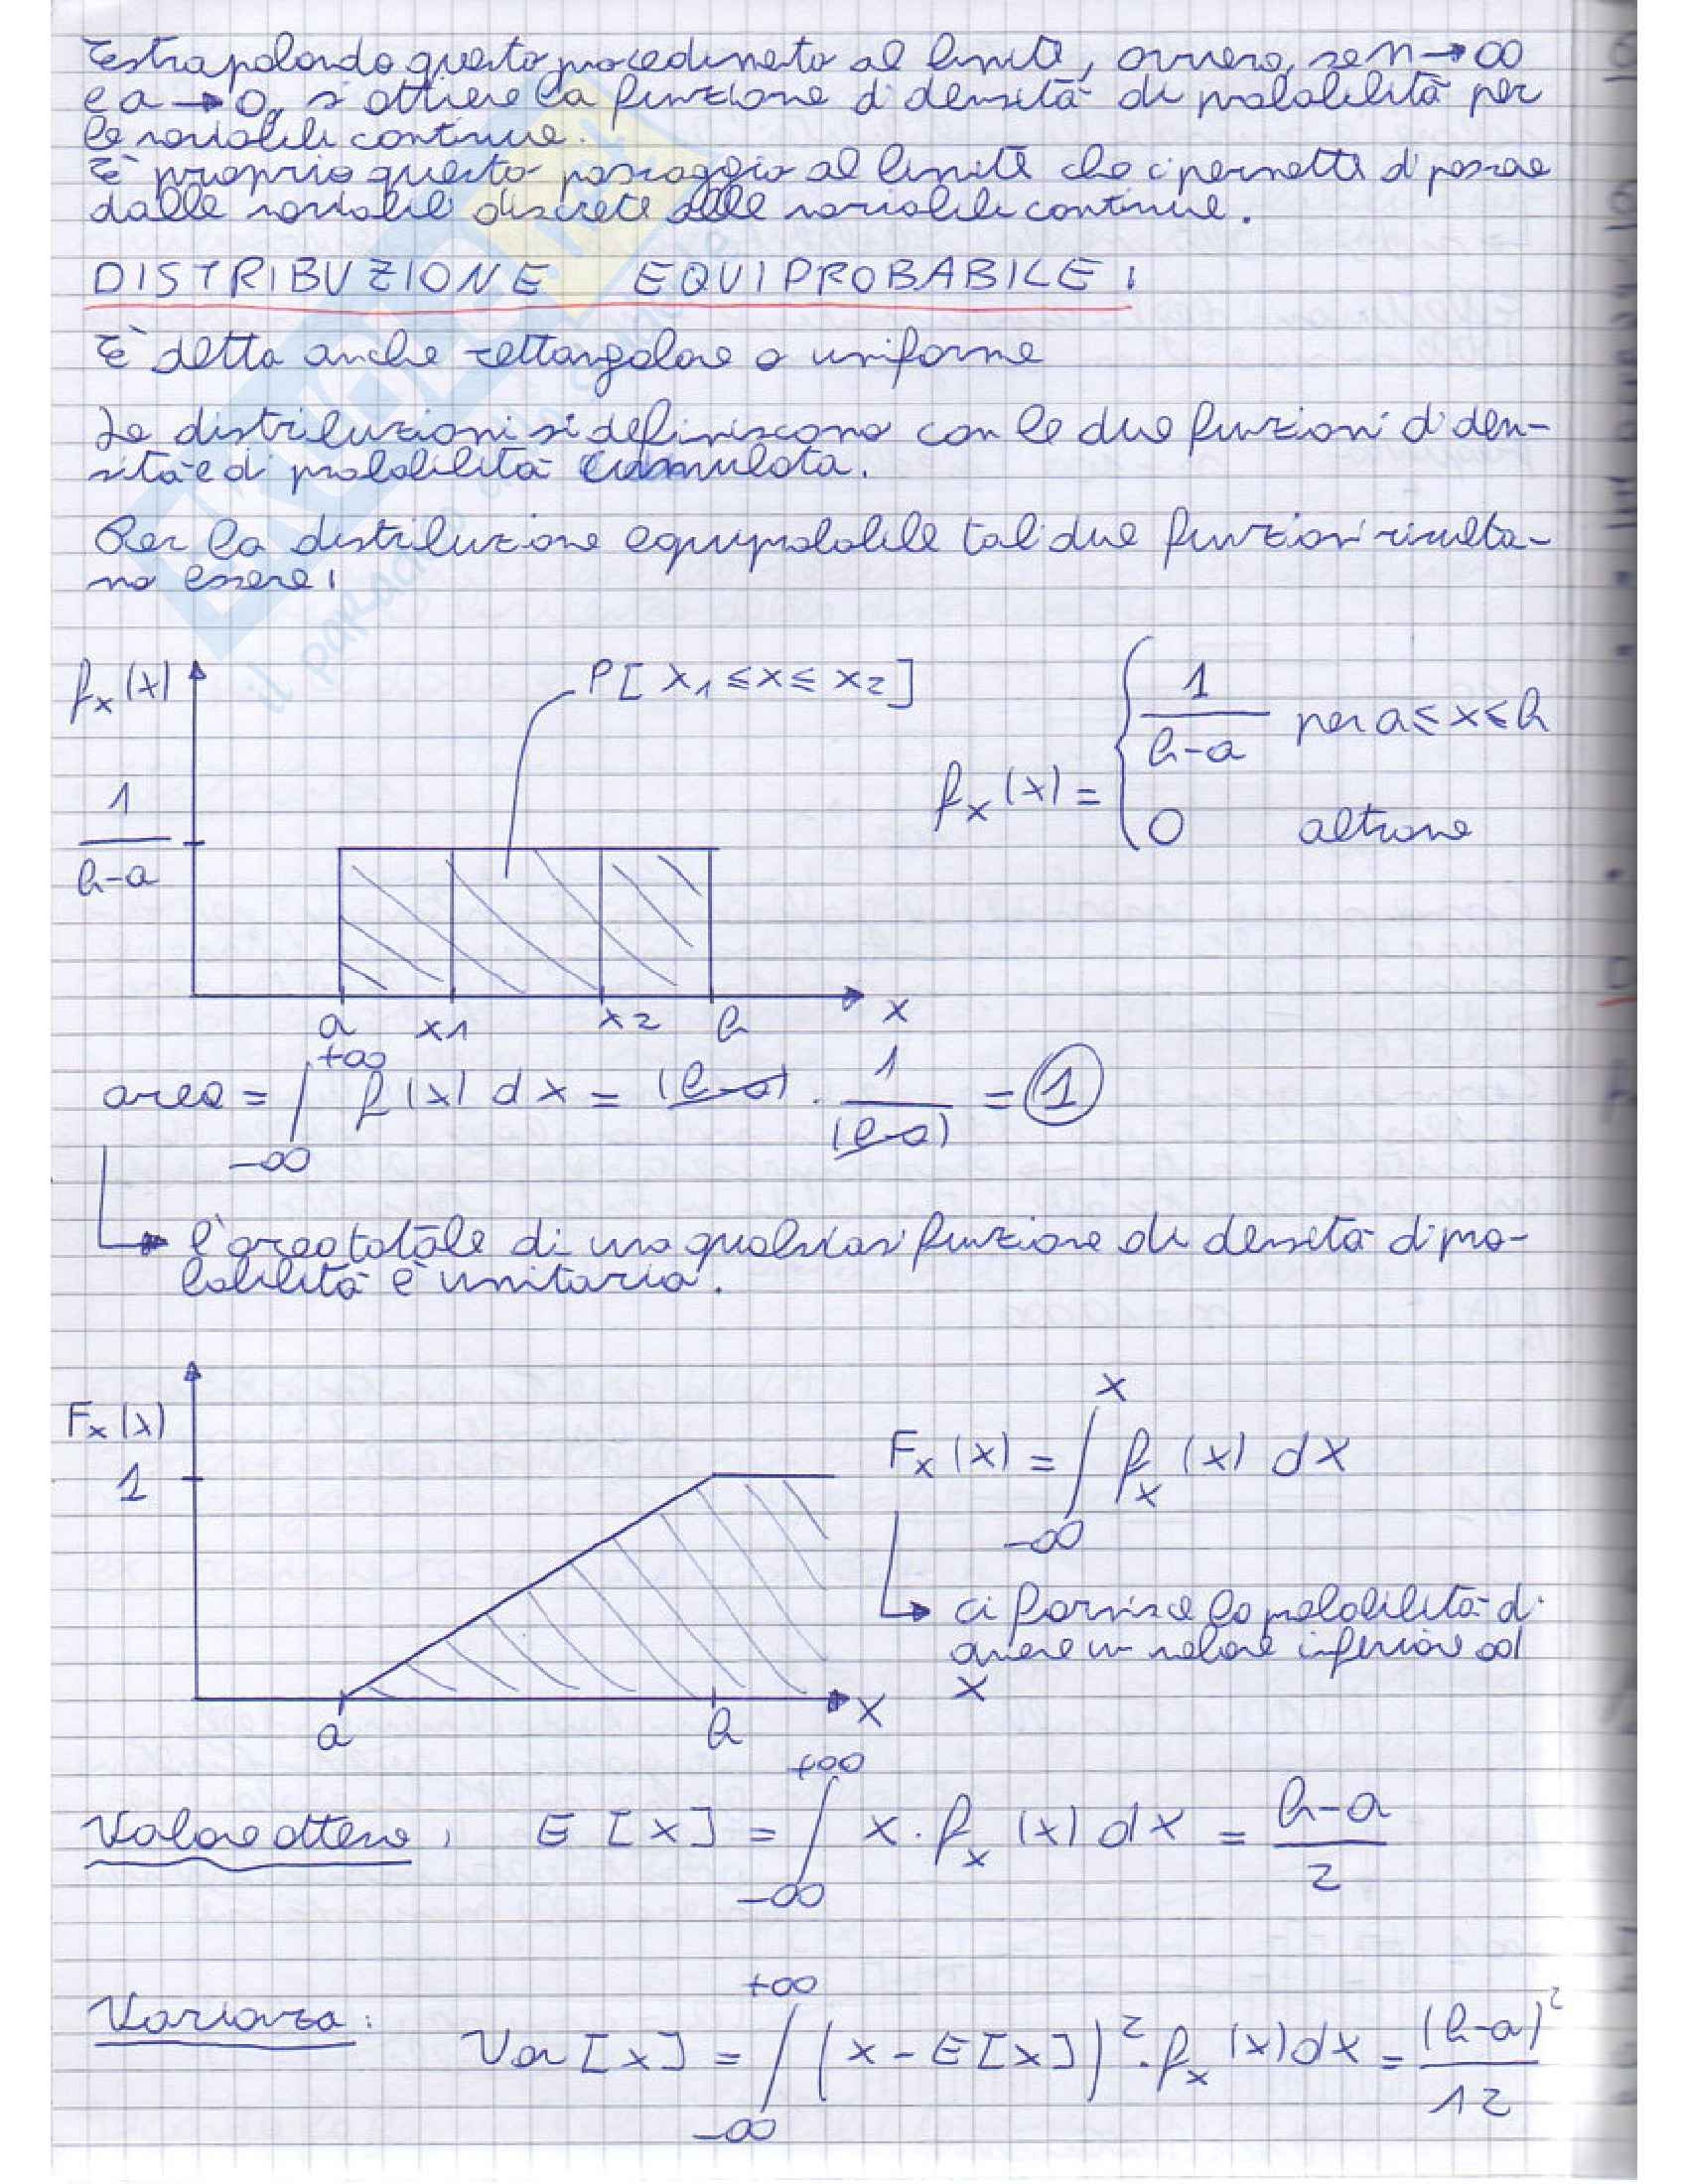 Estrapolando questo procedimento al limite, ovvero, se n → ∞
e a → 0, si ottiene la funzione di densità di probabilità per
le variabili continue.
È proprio questo passaggio al limite che ci permette di passare
dalle variabili discrete alle variabili continue.
DISTRIBUZIONE EQUIPROBABILE:
È detta anche rettangolare o uniforme
Le distribuzioni si definiscono con le due funzioni di den-
sità e di probabilità cumulata.
Per la distribuzione equiprobabile tali due funzioni risulta-
no essere:
fx(x)
P[ x1 ≤ x ≤ x2 ]
1/(b-a)
fx(x) = { 1/(b-a) per a ≤ x ≤ b
0 altrove
a x1 x2 b x
area = ∫ -∞ +∞ f(x) dx = (b-a) · 1/(b-a) = 1
l'area totale di una qualsiasi funzione di densità di pro-
babilità è unitaria.
Fx(x)
1
Fx(x) = ∫ -∞ x fx(x) dx
ci fornisce la probabilità di
avere un valore inferiore ad
x
a b x
Valore atteso: E[x] = ∫ -∞ +∞ x · fx(x) dx = (b-a)/2
Varianza: Var[x] = ∫ -∞ +∞ (x - E[x])² · fx(x) dx = (b-a)²/12